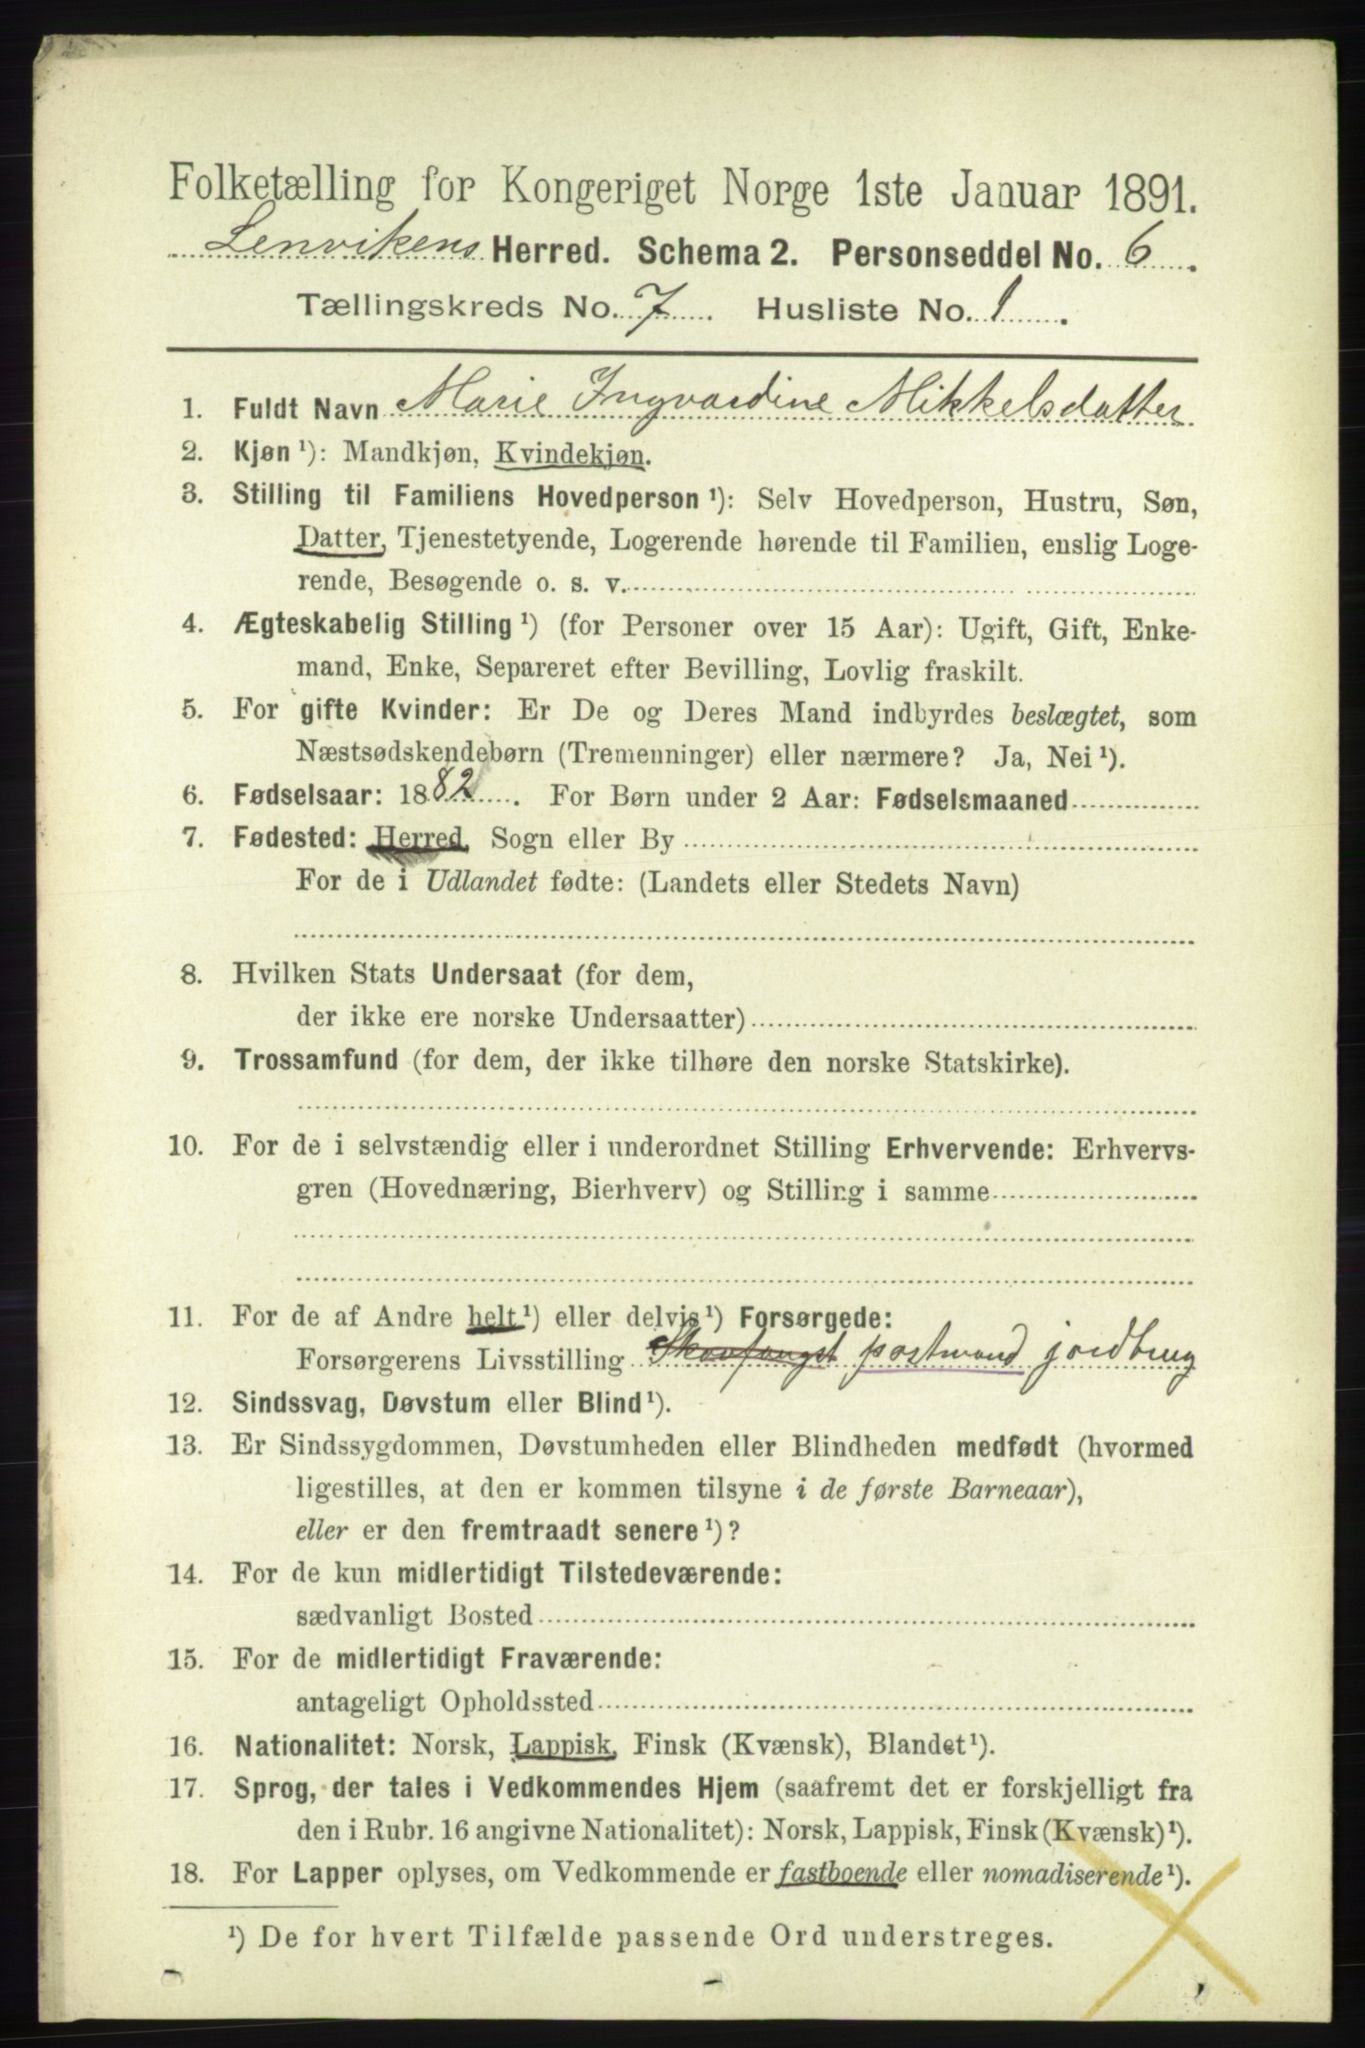 Folketælling for Kongeriget Norge 1ste Januar 1891.
Lenvikens Herred. Schema 2. Personseddel No. 6.
Tællingskreds No. 7. Husliste No. 1.
1. Fuldt Navn Marie Ingvardine Mikkelsdatter
2. Kjøn ¹): Mandkjøn, Kvindekjøn.
3. Stilling til Familiens Hovedperson ¹): Selv Hovedperson, Hustru, Søn,
Datter, Tjenestetyende, Logerende hørende til Familien, enslig Loge-
rende, Besøgende o. s. v.
4. Ægteskabelig Stilling ¹) (for Personer over 15 Aar): Ugift, Gift, Enke-
mand, Enke, Separeret efter Bevilling, Lovlig fraskilt.
5. For gifte Kvinder: Er De og Deres Mand indbyrdes beslægtet, som
Næstsødskendebørn (Tremenninger) eller nærmere? Ja, Nei ¹).
6. Fødselsaar: 1882. For Børn under 2 Aar: Fødselsmaaned
7. Fødested: Herred, Sogn eller By
For de i Udlandet fødte: (Landets eller Stedets Navn)
8. Hvilken Stats Undersaat (for dem,
der ikke ere norske Undersaatter)
9. Trossamfund (for dem, der ikke tilhøre den norske Statskirke).
10. For de i selvstændig eller i underordnet Stilling Erhvervende: Erhvervs-
gren (Hovednæring, Bierhverv) og Stilling i samme
11. For de af Andre helt ¹) eller delvis ¹) Forsørgede:
Forsørgerens Livsstilling postmand jordbrug
12. Sindssvag, Døvstum eller Blind ¹).
13. Er Sindssygdommen, Døvstumheden eller Blindheden medfødt (hvormed
ligestilles, at den er kommen tilsyne i de første Barneaar),
eller er den fremtraadt senere ¹)?
14. For de kun midlertidigt Tilstedeværende:
sædvanligt Bosted
15. For de midlertidigt Fraværende:
antageligt Opholdssted
16. Nationalitet: Norsk, Lappisk, Finsk (Kvænsk), Blandet ¹).
17. Sprog, der tales i Vedkommendes Hjem (saafremt det er forskjelligt fra
den i Rubr. 16 angivne Nationalitet): Norsk, Lappisk, Finsk (Kvænsk) ¹).
18. For Lapper oplyses, om Vedkommende er fastboende eller nomadiserende ¹).
¹) De for hvert Tilfælde passende Ord understreges.